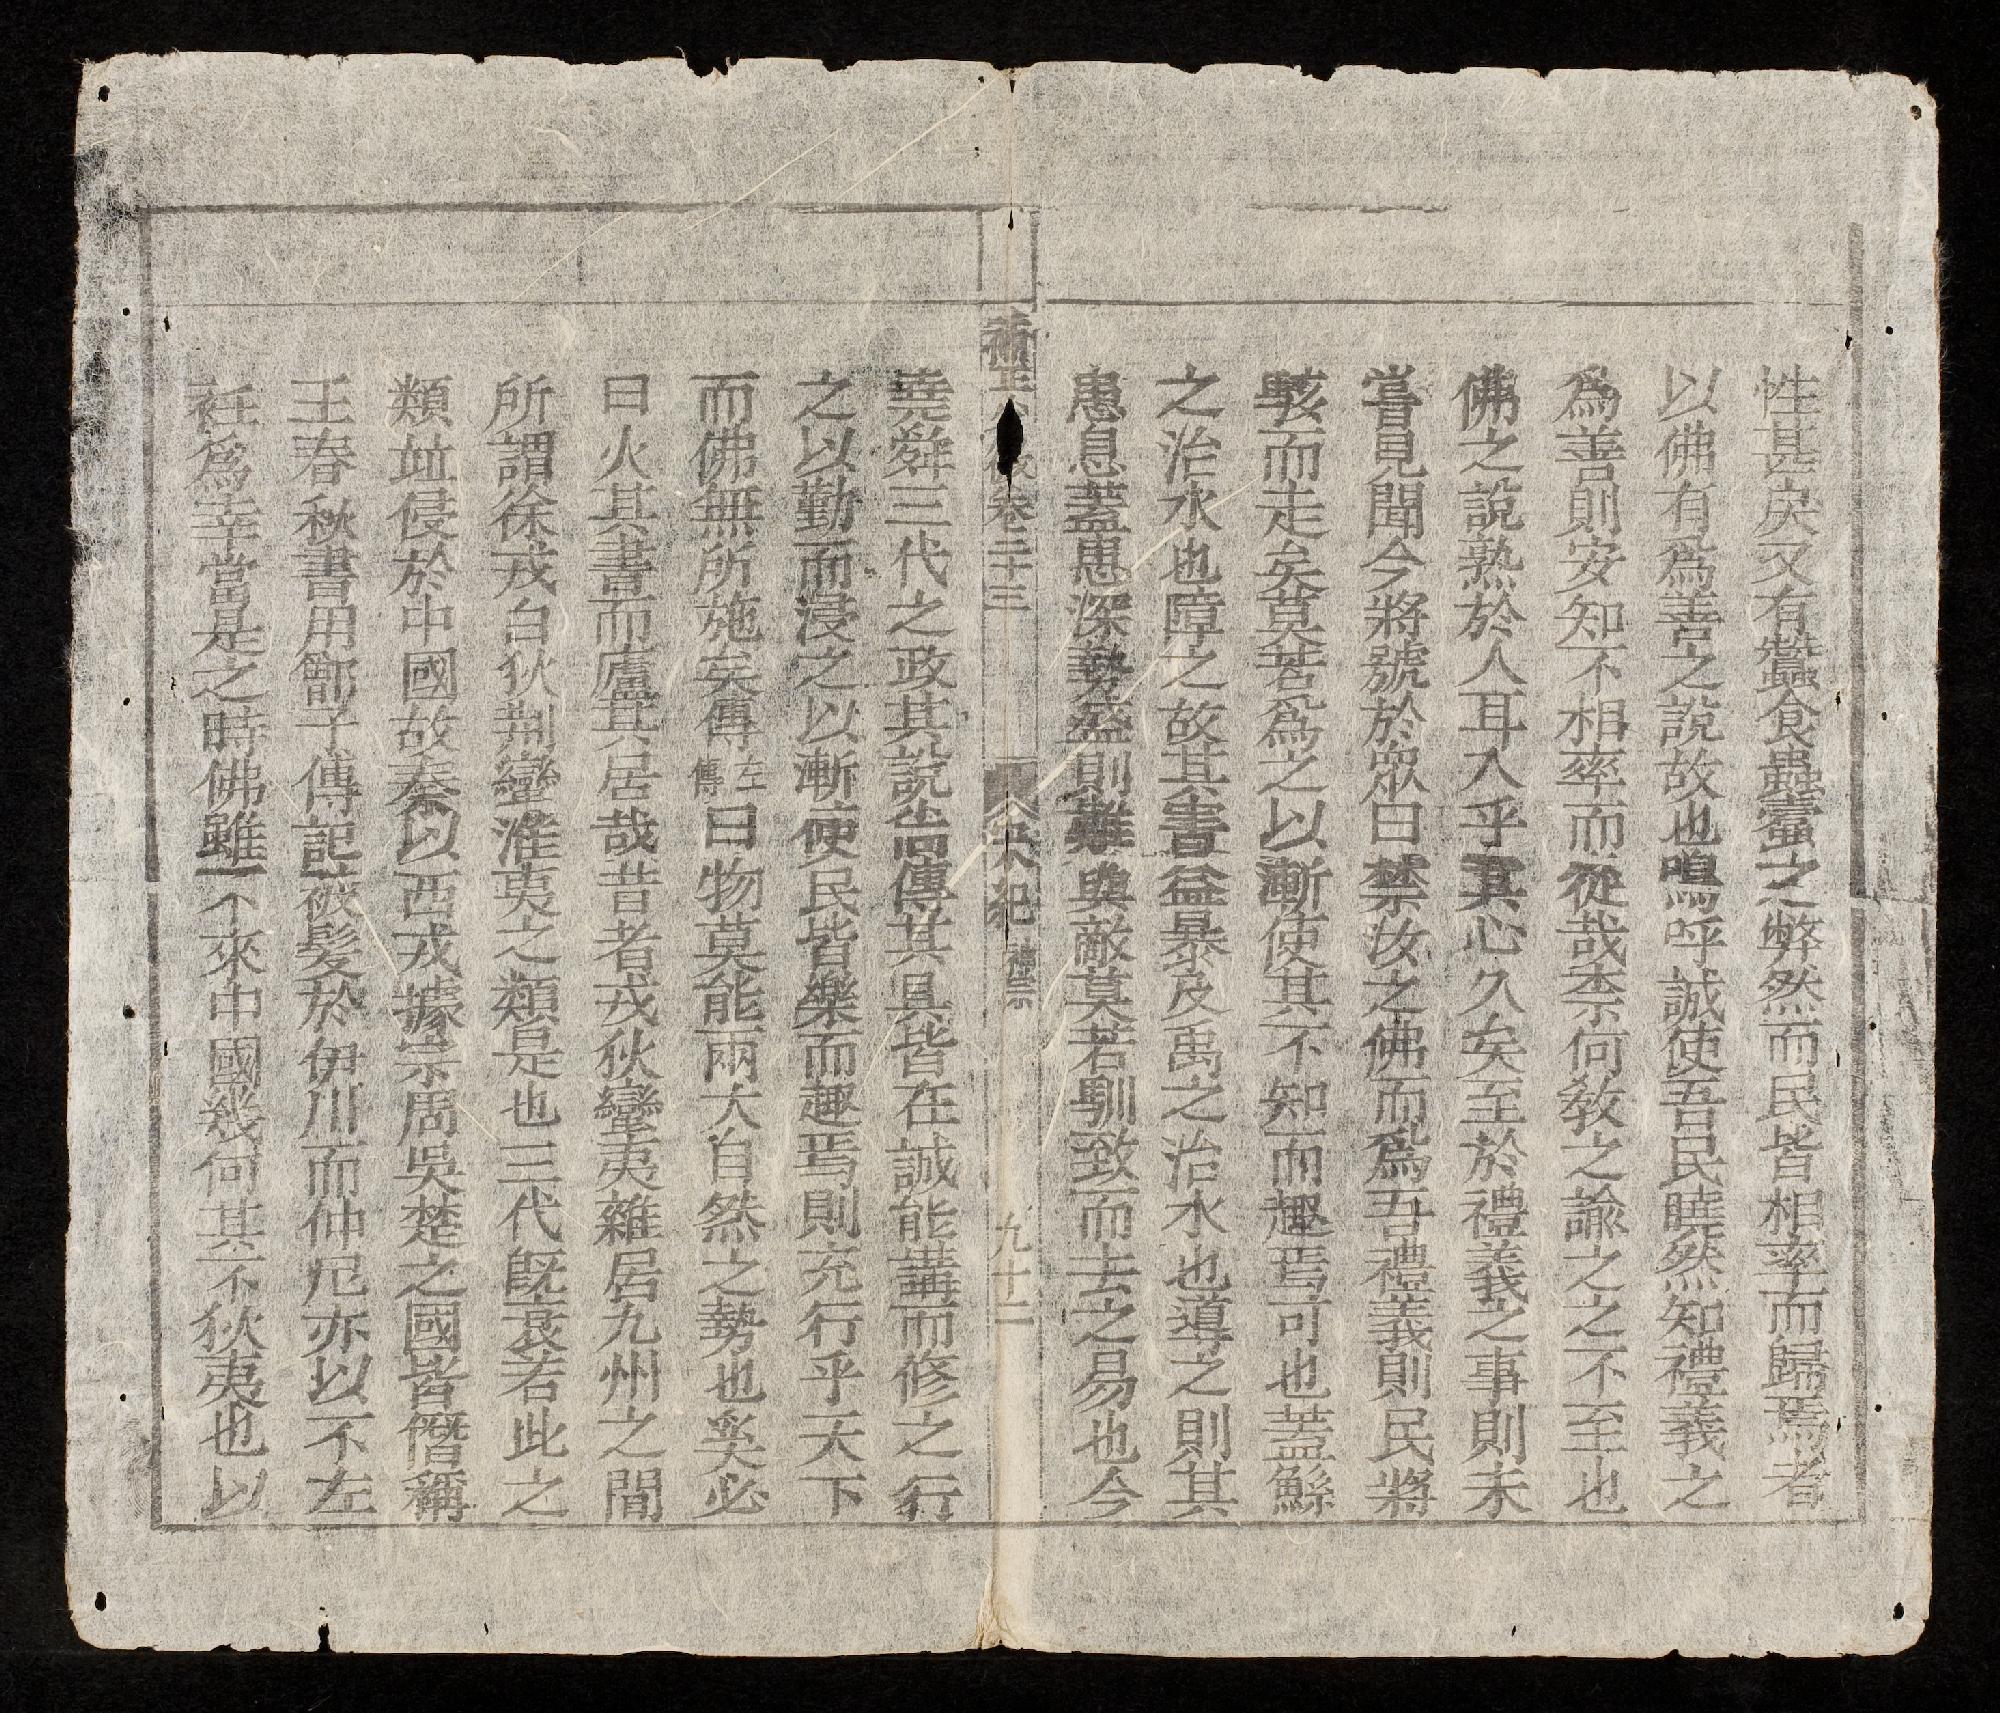 性甚戾又有蠶食蟲蠹之弊然而民皆相率而歸焉者
以佛有爲善之說故也嗚呼誠使吾民曉然知禮義之
爲善則安知不相率而從哉柰何敎之諭之之不至也
佛之說熟於人耳入乎其心久矣至於禮義之事則未
嘗見聞今將號於眾曰禁汝之佛而爲吾禮義則民將
駭而走矣莫若爲之以漸使其不知而趣焉可也蓋鯀
之治水也障之故其害益暴及禹之治水也導之則其
患息蓋患深勢盛則難與敵莫若馴致而去之易也今
卷二十三 宋紀 九十二
堯舜三代之政其說尚傳其具皆在誠能講而修之行
之以勤而浸之以漸使民皆樂而趣焉則充行乎天下
而佛無所施矣傳左傳曰物莫能兩大自然之勢也奚必
曰火其書而廬其居哉昔者戎狄蠻夷雜居九州之間
所謂徐戎白狄荆蠻淮夷之類是也三代旣衰若此之
類竝侵於中國故秦以西戎據宗周吳楚之國皆僭稱
王春秋書用鄫子傳記被髮於伊川而仲尼亦以不左
衽爲幸當是之時佛雖不來中國幾何其不狄夷也以